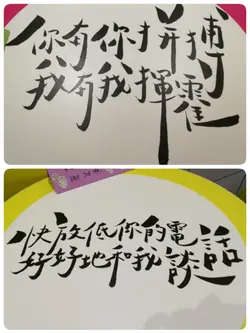 你有你拼搏
我有我揮霍
快放低你的電話
好好地和我談